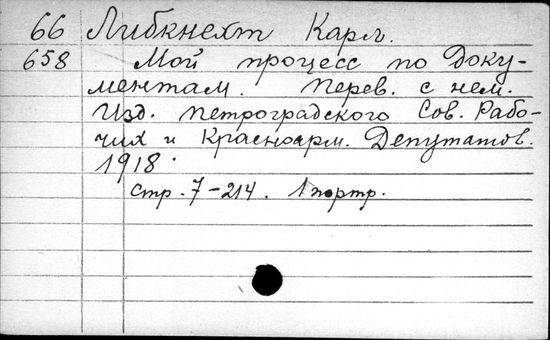 66 Либкнехт Карл.
658 Мой процесс по доку-
ментам. Перев. с нем.
Изд. Петроградского Сов. Рабо-
чих и Красноарм. Депутатов.
1918.
стр. 7-214. 1 портр.